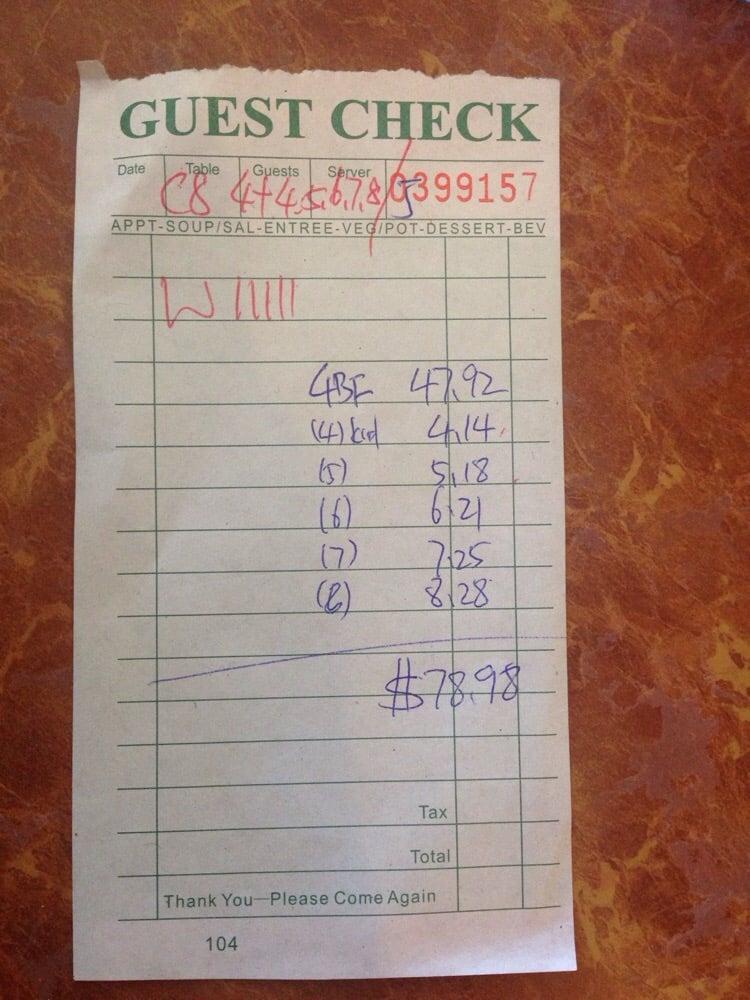 GUEST CHECK
Date Table Guests Server
C8 4+4,5,6,7,8 0399157
APPT-SOUP/SAL-ENTREE-VEG/POT-DESSERT-BEV
W
4BF 47.92
(4) kid 4.14
(5) 5.18
(6) 6.21
(7) 7.25
(8) 8.28
$78.98
Tax
Total
Thank You—Please Come Again
104